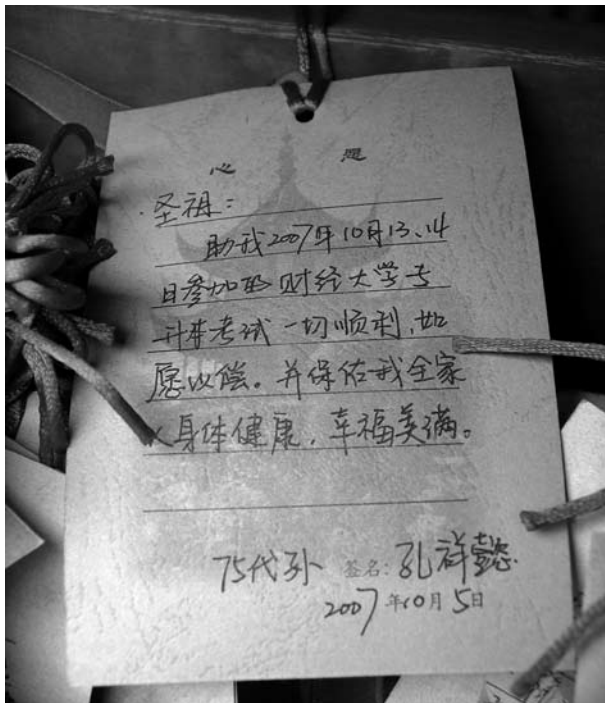 心愿
圣祖：
助我2007年10月13、14
日参加的财经大学专
升本考试一切顺利，如
愿以偿。并保佑我全家
人身体健康，幸福美满。
75代孙 签名：孔祥懿
2007年10月5日